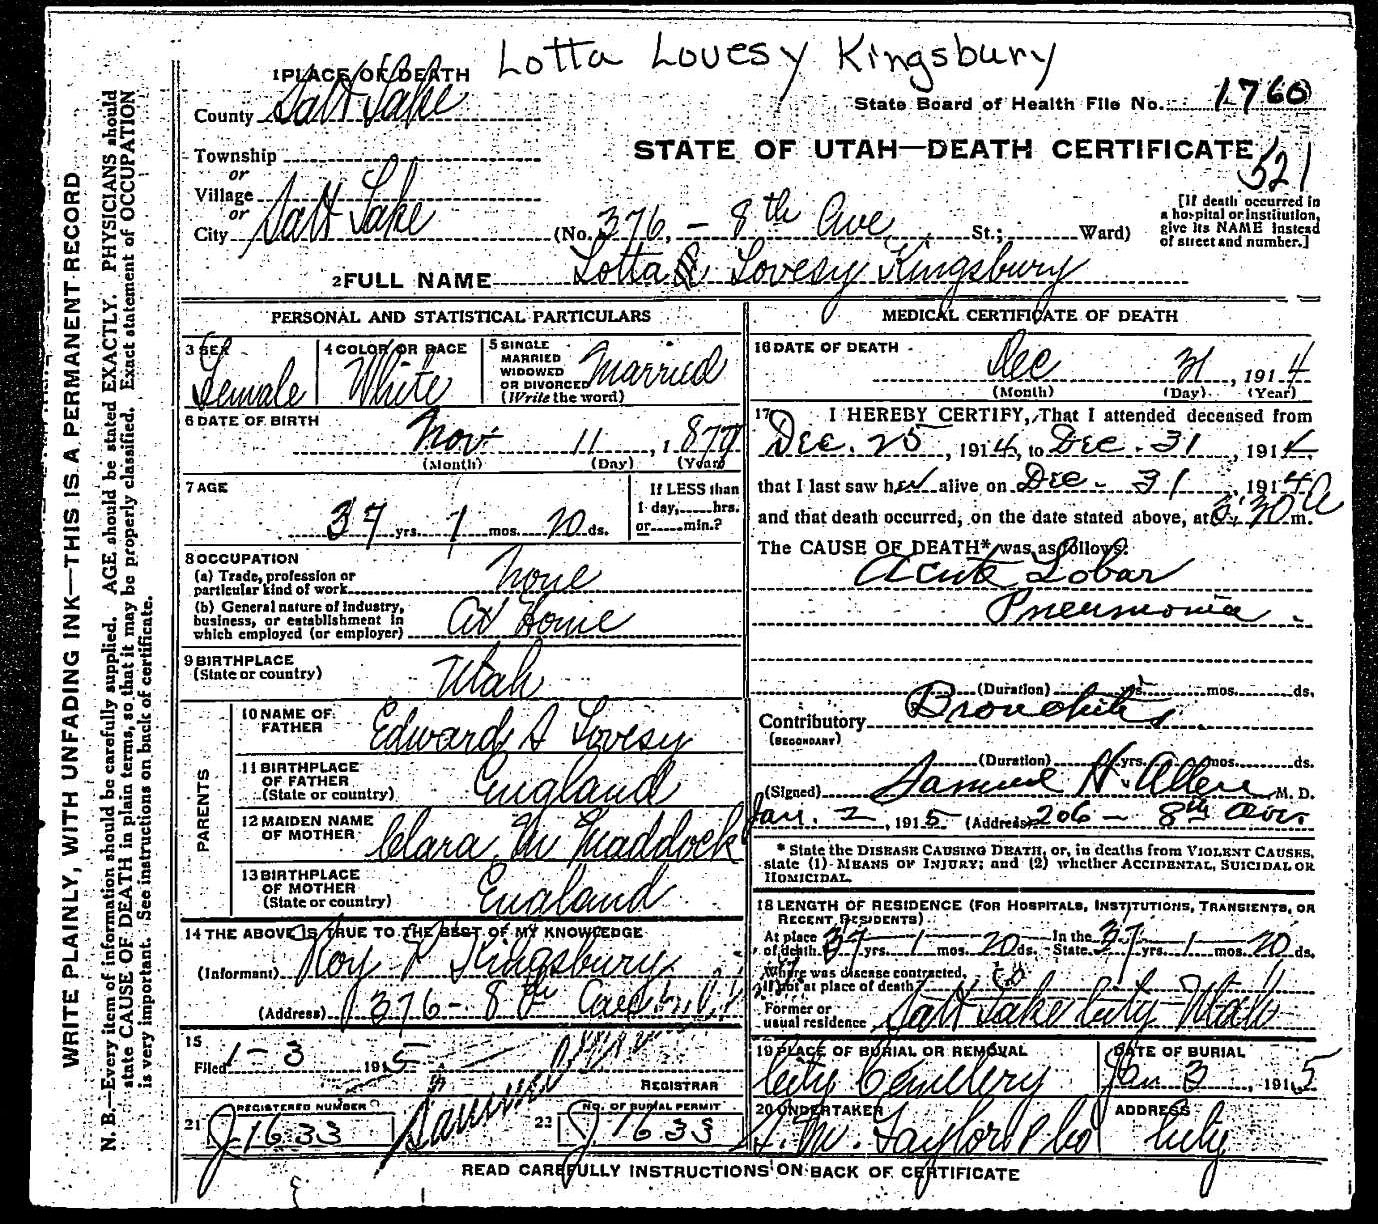 Lotta Lovesy Kingsbury
1 PLACE OF DEATH
State Board of Health File No. 1760
County Salt Lake
STATE OF UTAH—DEATH CERTIFICATE
521
Township
or
Village
or
City Salt Lake
(No. 376, - 8th Ave St.; Ward)
[If death occurred in
a hospital or institution,
give its NAME instead
of street and number.]
2 FULL NAME Lotta Lovesy Kingsbury
WRITE PLAINLY, WITH UNFADING INK—THIS IS A PERMANENT RECORD
N. B.—Every item of information should be carefully supplied. AGE should be stated EXACTLY. PHYSICIANS should
state CAUSE OF DEATH in plain terms, so that it may be properly classified. Exact statement of OCCUPATION
is very important. See instructions on back of certificate.
PERSONAL AND STATISTICAL PARTICULARS
3 SEX
Female
4 COLOR OR RACE
White
5 SINGLE
MARRIED
WIDOWED
OR DIVORCED
(Write the word)
Married
6 DATE OF BIRTH
Nov 11, 1877
(Month) (Day) (Year)
7 AGE
37 yrs. 1 mos. 20 ds.
If LESS than
1 day, hrs.
or min.?
8 OCCUPATION
(a) Trade, profession or
particular kind of work None
(b) General nature of industry,
business, or establishment in
which employed (or employer) At Home
9 BIRTHPLACE
(State or country) Utah
PARENTS
10 NAME OF
FATHER Edward A Lovesy
11 BIRTHPLACE
OF FATHER
(State or country) England
12 MAIDEN NAME
OF MOTHER Clara M Maddock
13 BIRTHPLACE
OF MOTHER
(State or country) England
14 THE ABOVE IS TRUE TO THE BEST OF MY KNOWLEDGE
(Informant) Roy Kingsbury
(Address) 376 - 8th
15
Filed 1-3 1915
REGISTRAR
21 REGISTERED NUMBER
J-1633
22 NO. OF BURIAL PERMIT
J 1633
MEDICAL CERTIFICATE OF DEATH
16 DATE OF DEATH
Dec 31, 1914
(Month) (Day) (Year)
17 I HEREBY CERTIFY, That I attended deceased from
Dec. 25, 1914, to Dec. 31, 1914
that I last saw her alive on Dec. 31, 1914
and that death occurred, on the date stated above, at 30 A m.
The CAUSE OF DEATH* was as follows:
Acute Lobar
Pneumonia.
(Duration) yrs. mos. ds.
Contributory Bronchitis
(SECONDARY)
(Duration) yrs. mos. ds.
(Signed) Samuel H. Allen M. D.
Jan. 2, 1915 (Address) 206 - 8th Ave.
* State the DISEASE CAUSING DEATH, or, in deaths from VIOLENT CAUSES,
state (1) MEANS OF INJURY; and (2) whether ACCIDENTAL, SUICIDAL OR
HOMICIDAL.
18 LENGTH OF RESIDENCE (FOR HOSPITALS, INSTITUTIONS, TRANSIENTS, OR
RECENT RESIDENTS)
At place
of death 37 yrs. 1 mos. 20 ds. In the
State 37 yrs. 1 mos. 20 ds.
Where was disease contracted,
if not at place of death?
Former or
usual residence Salt Lake City Utah
19 PLACE OF BURIAL OR REMOVAL
City Cemetery
DATE OF BURIAL
Jan 3, 1915
20 UNDERTAKER
S. M. Taylor & Co
ADDRESS
City
READ CAREFULLY INSTRUCTIONS ON BACK OF CERTIFICATE